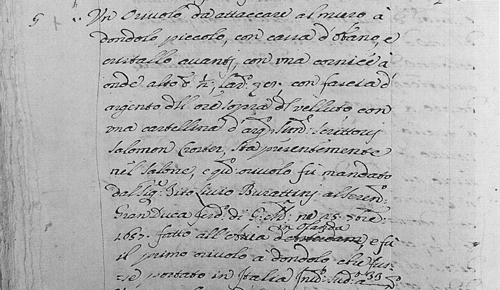 5 .. Un Orivolo da attaccare al muro à
dondolo piccolo, con cassa d'Ebano, e
cristallo avanti, con una cornice à
onde alto con fascia d'
argento dell'ore sopra del velluto con
una cartellina d'arg:to scrittovi
Salomon Coster, sta presentemente
nel Salone, e q:to orivolo fù mandato
dal Sig:r Tito Livio Burattini al Seren:
Gran Duca Ferd: di G: M: ne 25 7bre
1657. fatto all' in Olanda e fù
il primo orivolo à dondolo che fus-
se portato in Italia